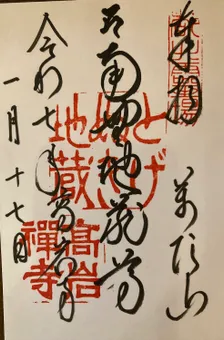 奉拝
萬頂山
地蔵尊
とげぬき
地蔵
高岩
禪寺
高岩寺
令和七年
一月十七日